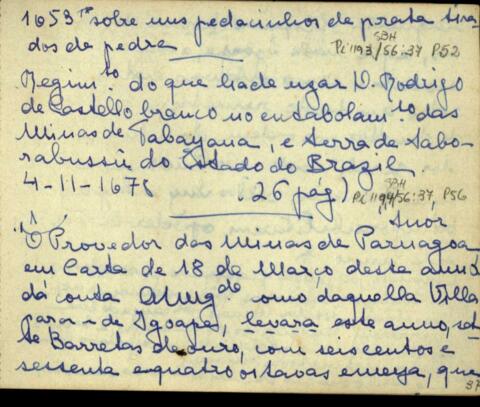 1653 rs sobre uns pedacinhos de prata tira-
dos de pedra
SBH
Pi 1193/56:37 P52
Regim.to do que hade uzar D. Rodrigo
de Castello branco no entabolam.to das
Minas de Tabayana, e serra de Sabo-
rabussú do Estado do Brazil
4-11-167 (26 pág)
SBH
Pi 1194/56:37, P56
Snor
"O Provedor das Minas de Parnagoa
em Carta de 18 de Março deste anno
dá conta como daquella Villa
para a de Igoape, levara este anno, set-
te Barretas de ouro, com seiscentos e
sessenta e quatro oitavas emeya, que
37